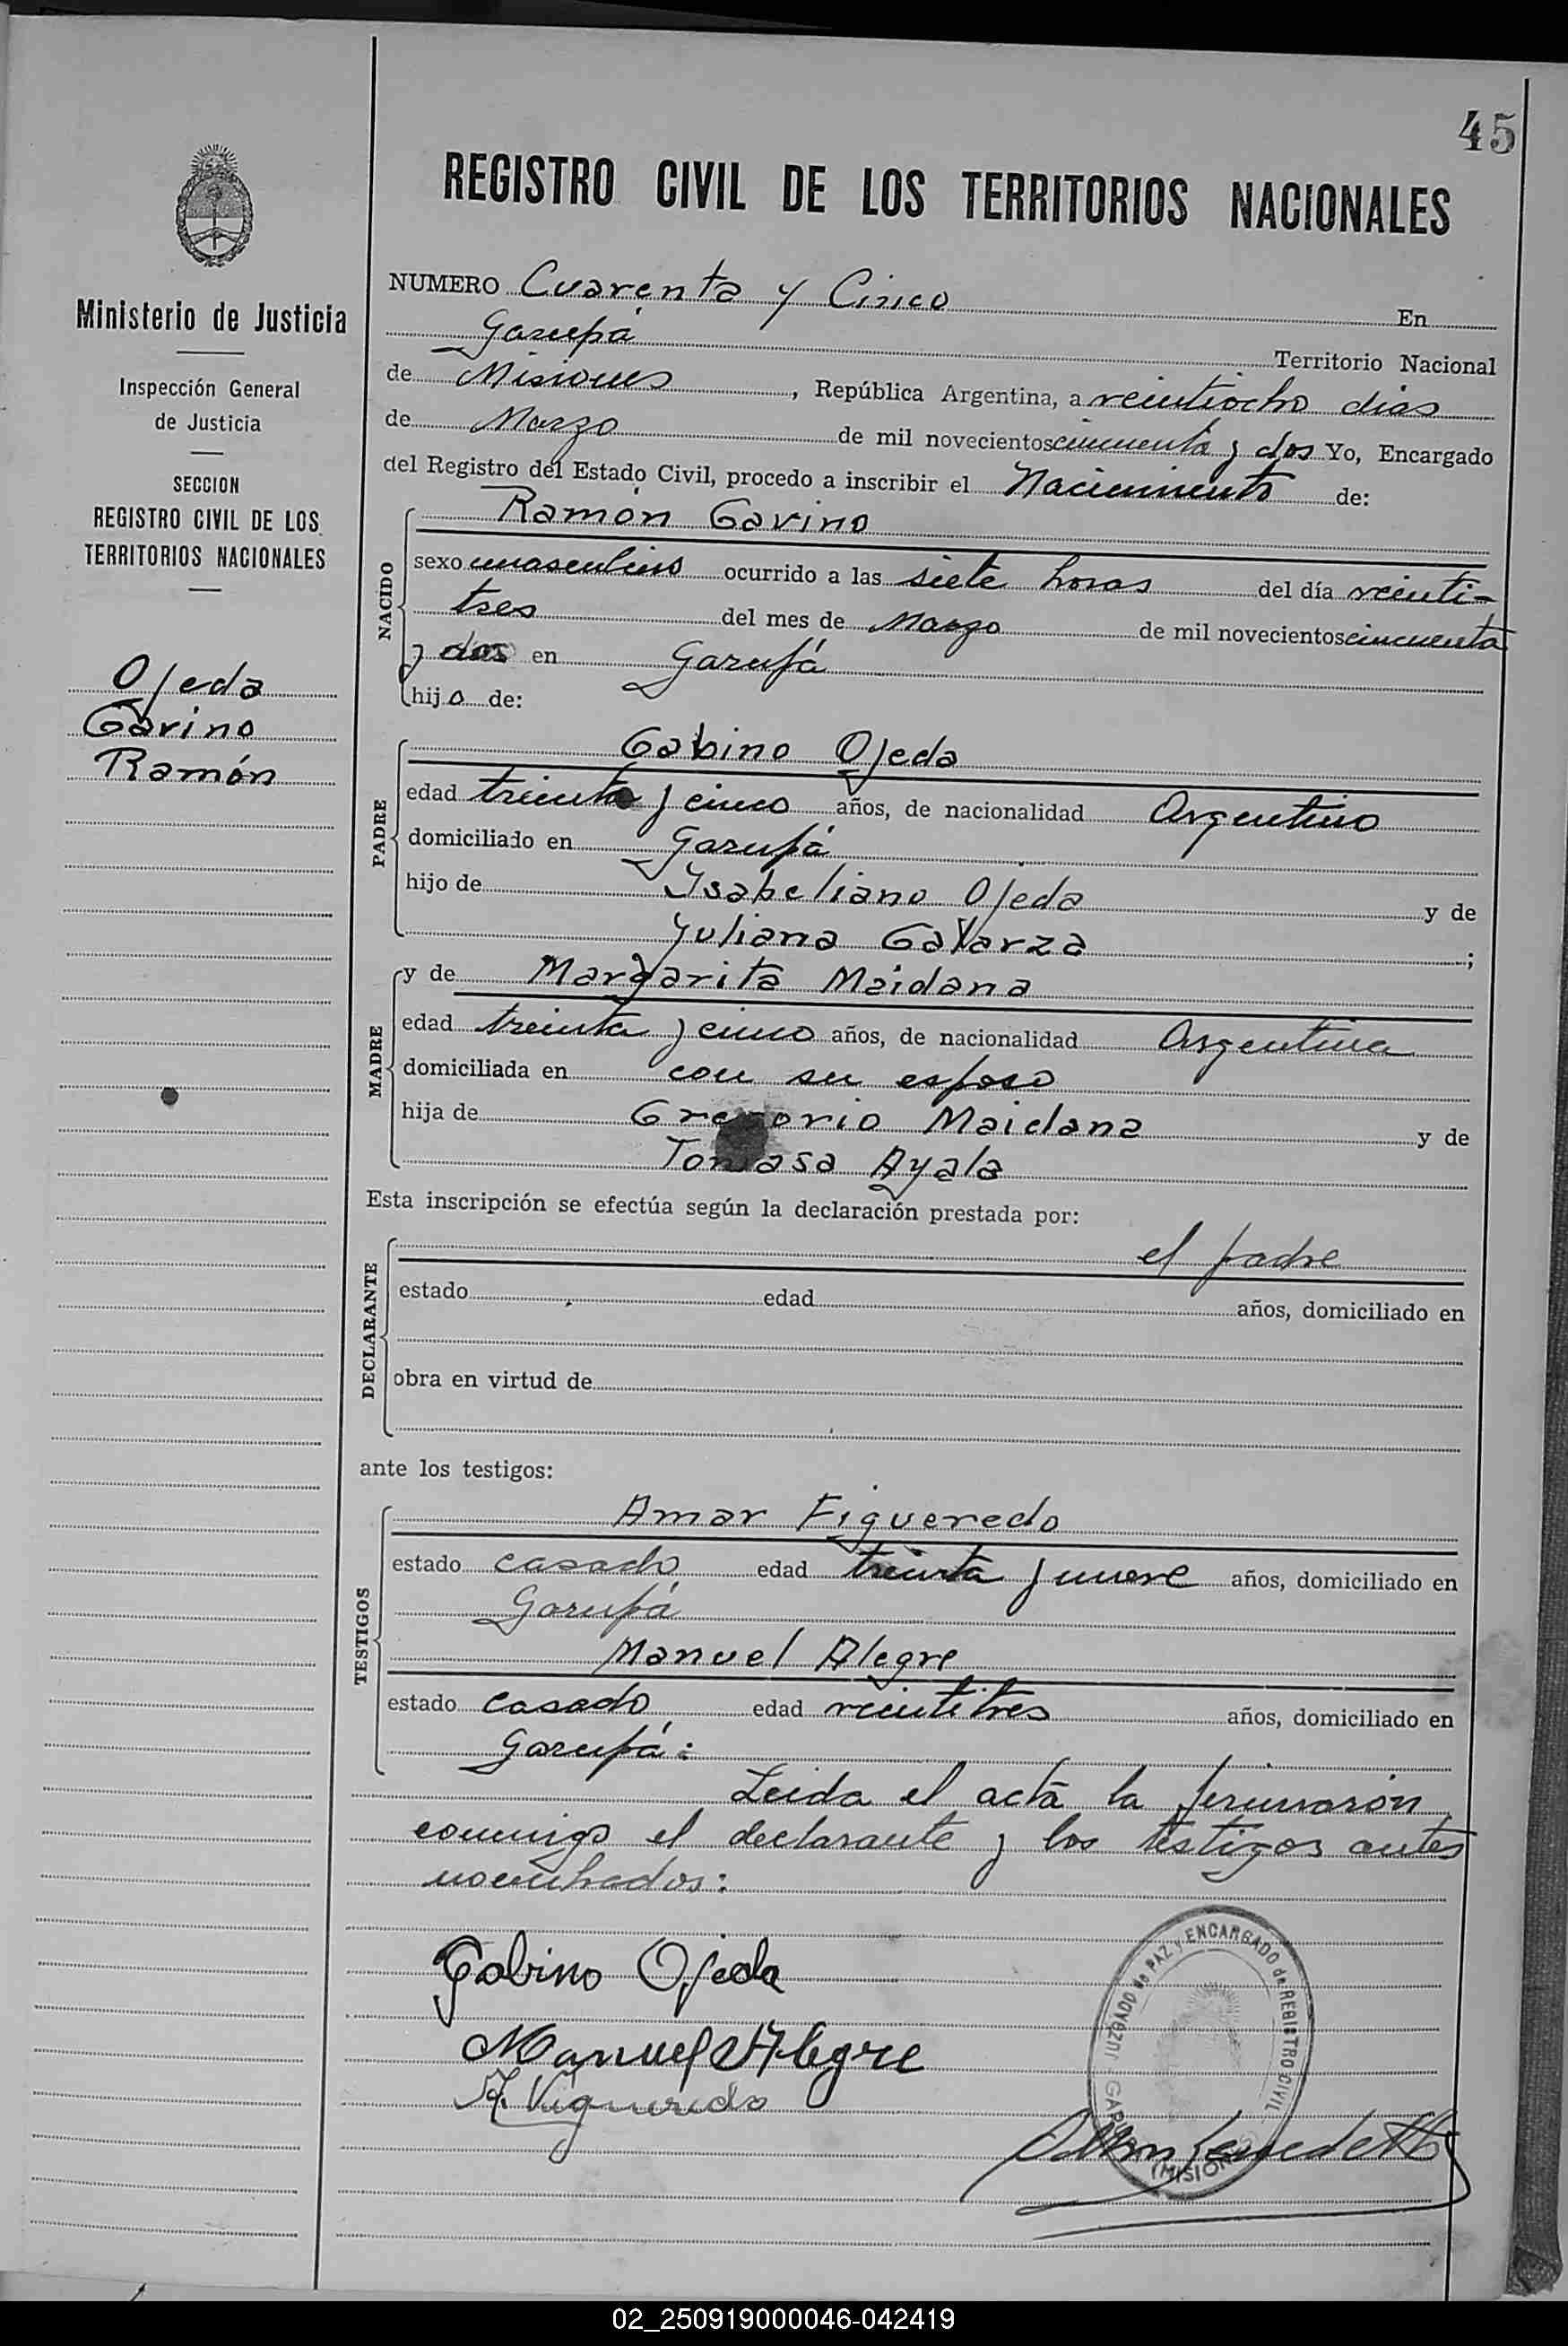 45
REGISTRO CIVIL DE LOS TERRITORIOS NACIONALES
Ministerio de Justicia
Inspección General
de Justicia
SECCION
REGISTRO CIVIL DE LOS
TERRITORIOS NACIONALES
Ojeda
Gavino
Ramón
NUMERO Cuarenta y Cinco En
Garupá Territorio Nacional
de Misiones, República Argentina, a veintiocho dias
de Marzo de mil novecientos cincuenta y dos Yo, Encargado
del Registro del Estado Civil, procedo a inscribir el Nacimiento de:
NACIDO
Ramón Gavino
sexo masculino ocurrido a las siete horas del día veinti-
tres del mes de Marzo de mil novecientos cincuenta
y dos en Garupá
hijo de:
PADRE
Gabino Ojeda
edad treinta y cinco años, de nacionalidad Argentino
domiciliado en Garupá
hijo de Ysabeliano Ojeda y de
Yuliana Galarza ;
MADRE
y de Margarita Maidana
edad treinta y cinco años, de nacionalidad Argentina
domiciliada en con su esposo
hija de Gregorio Maidana y de
Tomasa Ayala
Esta inscripción se efectúa según la declaración prestada por:
DECLARANTE
el padre
estado edad años, domiciliado en
obra en virtud de
ante los testigos:
TESTIGOS
Amar Figueredo
estado casado edad treinta y nueve años, domiciliado en
Garupá
Manuel Alegre
estado casado edad veintitres años, domiciliado en
Garupá:
Leida el acta la firmaron
conmigo el declarante y los testigos antes
nombrados:
Gabino Ojeda
Manuel Alegre
JUZGADO de PAZ y ENCARGADO de REGISTRO CIVIL
GARUPA (MISIONES)
02_250919000046-042419